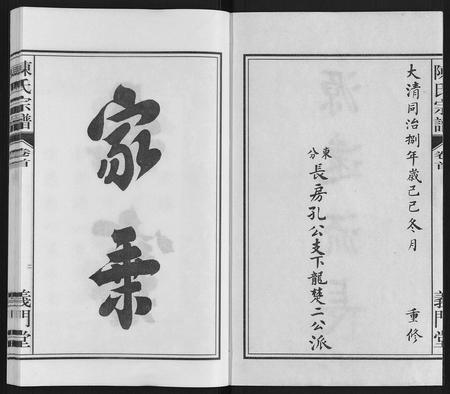 陳氏宗譜
卷首
義門堂
大清同治捌年歲己巳冬月 重修
東分長房孔公支下龍楚二公派
家乘
陳氏宗譜
卷首
義門堂